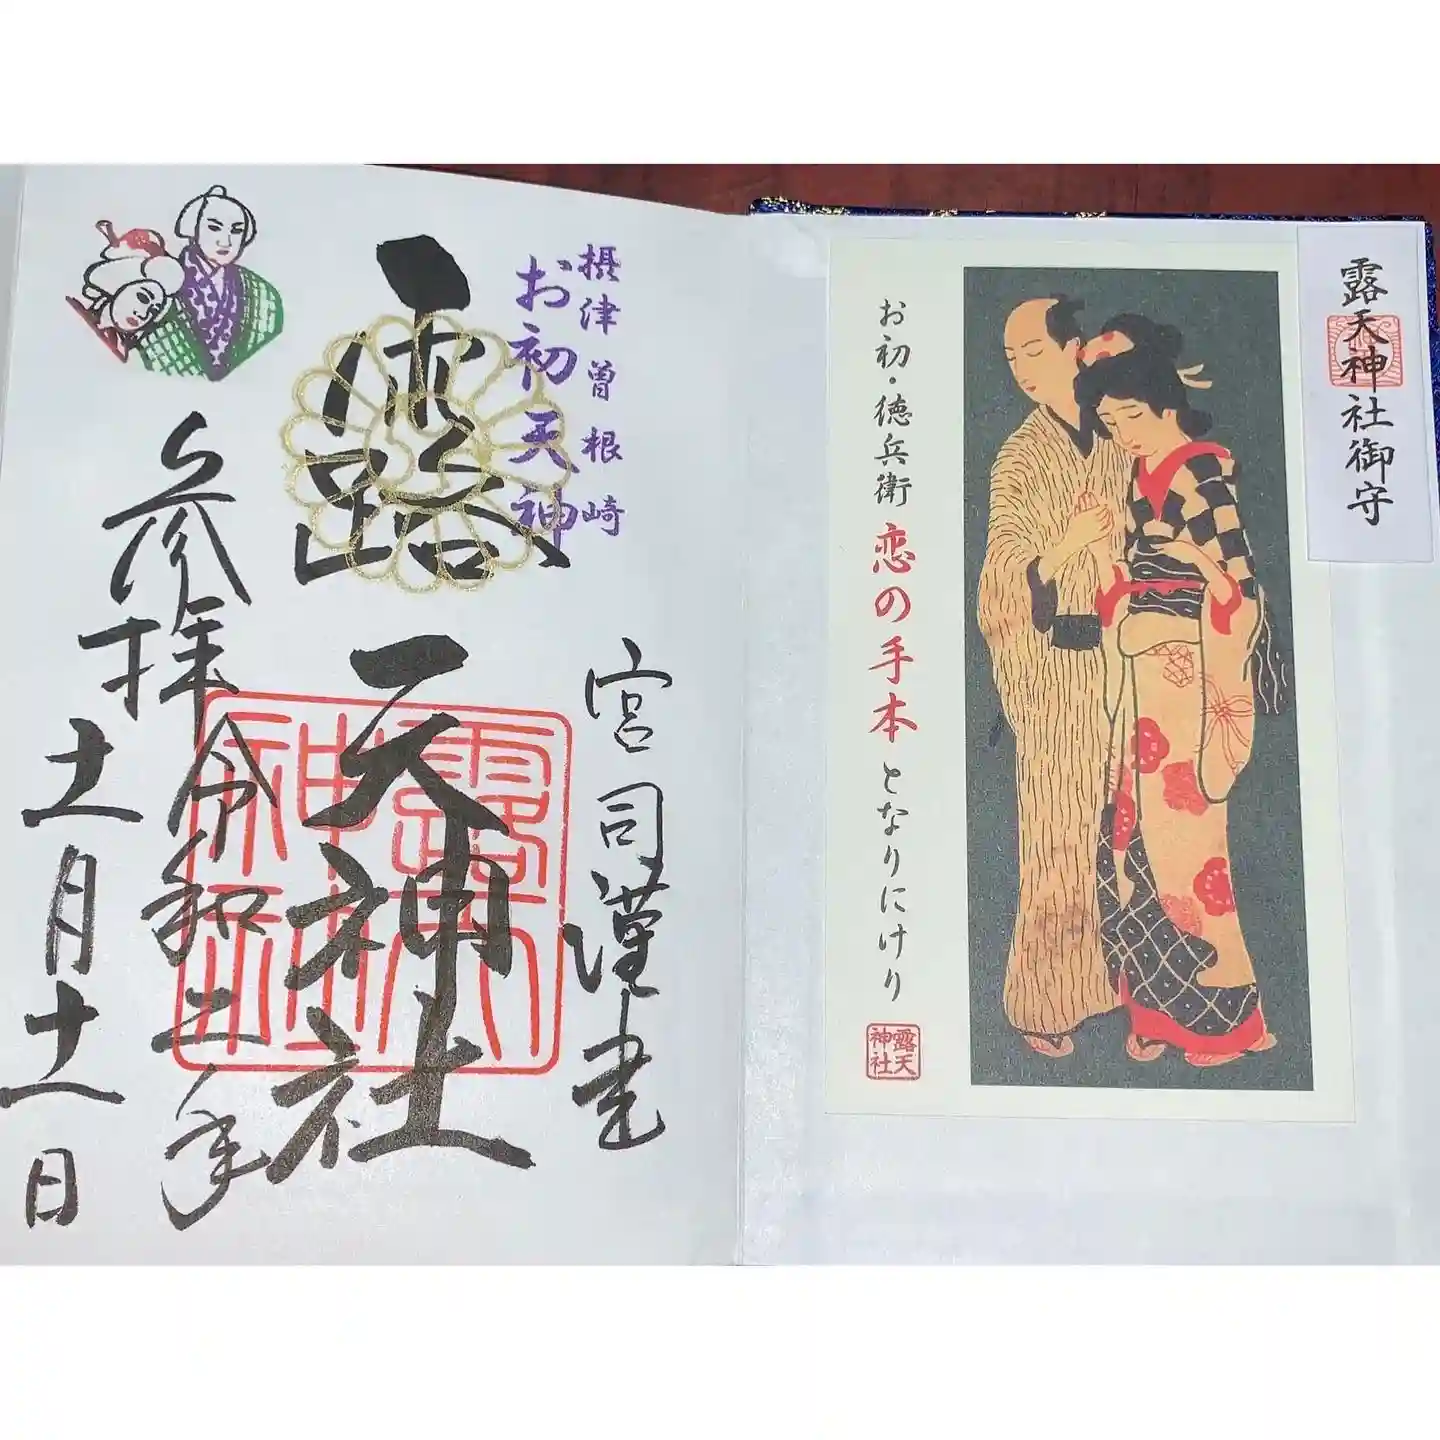 露天神社御守
お初・徳兵衛 恋の手本 となりにけり
露天神社
摂津 曽根崎
お初天神
宮司謹書
露天神社
露天神社
参拝 令和二年
十一月十一日